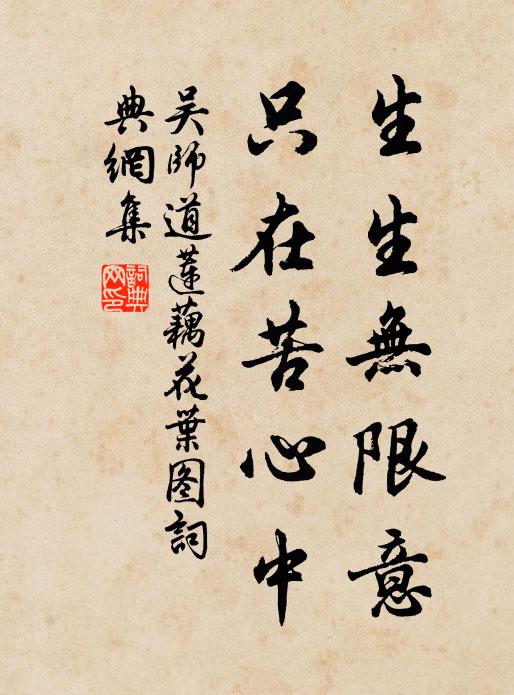 生生無限意
只在苦心中
吴師道蓮藕花葉图詞
典網集
詞典
网印